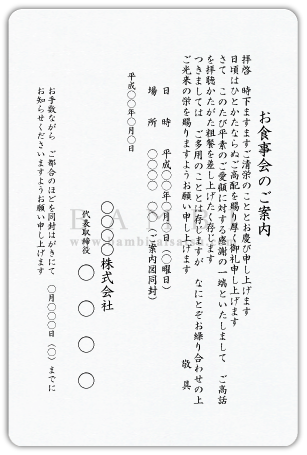 お食事会のご案内
拝啓　時下ますますご清栄のこととお慶び申し上げます
日頃はひとかたならぬご高配を賜り厚く御礼申し上げます
さて　このたび平素のご愛顧に対する感謝の一端といたしまして　ご高話
を拝聴かたがた粗餐を差し上げたく存じます
つきましては　ご多用のこととは存じますが　なにとぞお繰り合わせの上
ご光来の栄を賜りますようお願い申し上げます
敬　具
日　時　平成○○年○月○日（○曜日）
場　所　○○○○（ご案内図同封）
平成○○年○月○日
○○○○株式会社
代表取締役　○　○　○　○
お手数ながら　ご都合のほどを同封はがきにて　○月○○日（○）までに
お知らせくださいますようお願い申し上げます